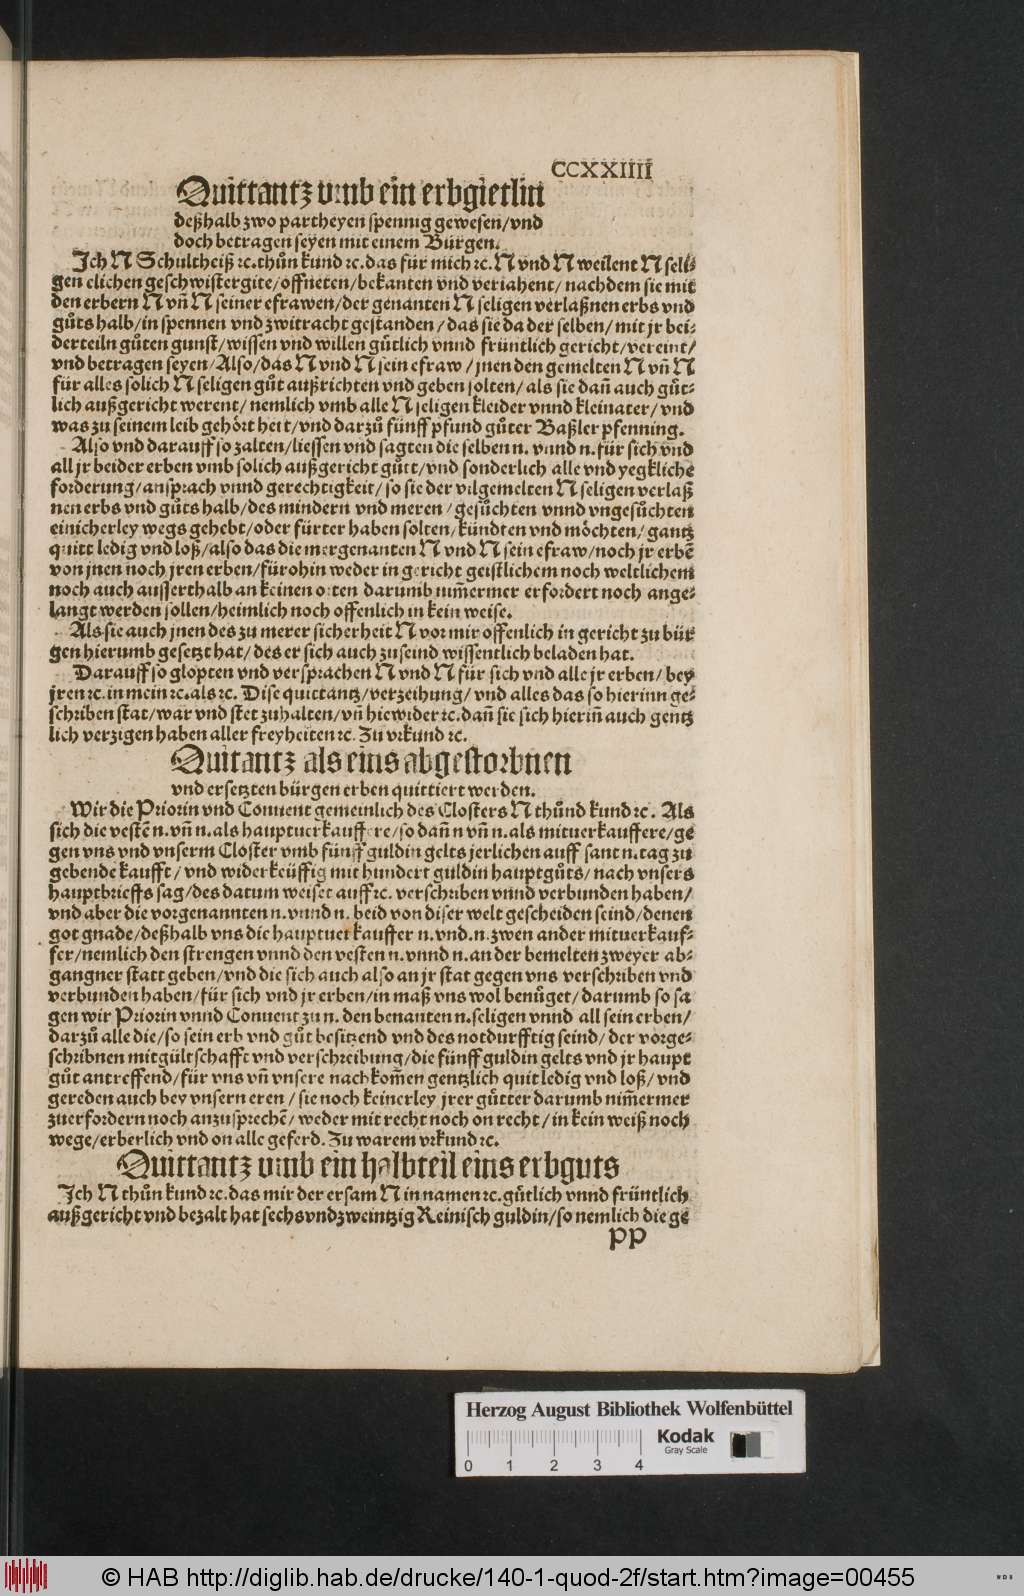 CCXXIIII
Quittantz vmb ein erbgietlin
deßhalb zwo partheyen spennig gewesen/vnd
doch betragen seyen mit einem Bürgen.
Ich N Schultheiß ⁊c. thůn kund ⁊c. das für mich ⁊c. N vnd N weilent N seli-
gen elichen geschwistergite/offneten/bekanten vnd veriahent/nachdem sie mit
den erbern N vñ N seiner efrawen/der genanten N seligen verlaßnen erbs vnd
gůts halb/in spennen vnd zwitracht gestanden/das sie da der selben/mit jr bei-
derteiln gůten gunst/wissen vnd willen gůtlich vnnd früntlich gericht/vereint/
vnd betragen seyen/Also/das N vnd N sein efraw/jnen den gemelten N vñ N
für alles solich N seligen gůt außrichten vnd geben solten/als sie dañ auch gůt-
lich außgericht werent/nemlich vmb alle N seligen kleider vnnd kleinater/vnd
was zu seinem leib gehört hett/vnd darzů fünff pfund gůter Baßler pfenning.
Also vnd darauff so zalten/liessen vnd sagten die selben n. vnnd n. für sich vnd
all jr beider erben vmb solich außgericht gůtt/vnd sonderlich alle vnd yegkliche
forderung/ansprach vnnd gerechtigkeit/so sie der vilgemelten N seligen verlaß
nen erbs vnd gůts halb/des mindern vnd meren/gesůchten vnnd vngesůchten
einicherley wegs gehebt/oder fürter haben solten/kündten vnd möchten/gantz
quitt ledig vnd loß/also das die mergenanten N vnd N sein efraw/noch jr erbē
von jnen noch jren erben/fürohin weder in gericht geistlichem noch weltlichem
noch auch ausserthalb an keinen orten darumb nim̃ermer erfordert noch ange-
langt werden sollen/heimlich noch offenlich in kein weise.
Als sie auch jnen des zu merer sicherheit N vor mir offenlich in gericht zu bür
gen hierumb gesetzt hat/des er sich auch zuseind wissentlich beladen hat.
Darauff so glopten vnd versprachen N vnd N für sich vnd alle jr erben/bey
jren ⁊c. in mein ⁊c. als ⁊c. Dise quittantz/verzeihung/vnd alles das so hierinn ge-
schriben stat/war vnd stet zuhalten/vñ hiewider ⁊c. dañ sie sich hieriñ auch gentz
lich verzigen haben aller freyheiten ⁊c. Zu vrkund ⁊c.
Quitantz als eins abgestorbnen
vnd ersetzten bürgen erben quittiert werden.
Wir die Priorin vnd Conuent gemeinlich des Closters N thůnd kund ⁊c. Als
sich die vestē n. vñ n. als hauptuerkauffere/so dañ n vñ n. als mituerkauffere/ge
gen vns vnd vnserm Closter vmb fünff guldin gelts jerlichen auff sant n. tag zu
gebende kaufft/vnd widerkeüffig mit hundert guldin hauptgůts/nach vnsers
hauptbrieffs sag/des datum weiset auff ⁊c. verschriben vnnd verbunden haben/
vnd aber die vorgenannten n. vnnd n. beid von diser welt gescheiden seind/denen
got gnade/deßhalb vns die hauptuerkauffer n. vnd. n. zwen ander mituerkauf-
fer/nemlich den strengen vnnd den vesten n. vnnd n. an der bemelten zweyer ab-
gangner statt geben/vnd die sich auch also an jr stat gegen vns verschriben vnd
verbunden haben/für sich vnd jr erben/in maß vns wol benůget/darumb so sa
gen wir Priorin vnnd Conuent zu n. den benanten n. seligen vnnd all sein erben/
darzů alle die/so sein erb vnd gůt besitzend vnd des notdurfftig seind/der vorge-
schribnen mitgültschafft vnd verschreibung/die fünff guldin gelts vnd jr haupt
gůt antreffend/für vns vñ vnsere nachkom̃en gentzlich quit ledig vnd loß/vnd
gereden auch bey vnsern eren/sie noch keinerley jrer gůtter darumb nim̃ermer
zuerfordern noch anzusprechē/weder mit recht noch on recht/in kein weiß noch
wege/erberlich vnd on alle geferd. Zu warem vrkund ⁊c.
Quittantz vmb ein halbteil eins erbguts
Ich N thůn kund ⁊c. das mir der ersam N in namen ⁊c. gůtlich vnnd früntlich
außgericht vnd bezalt hat sechsvndzweintzig Reinisch guldin/so nemlich die ge
pp
Herzog August Bibliothek Wolfenbüttel
Kodak
Gray Scale
0 1 2 3 4
© HAB http://diglib.hab.de/drucke/140-1-quod-2f/start.htm?image=00455